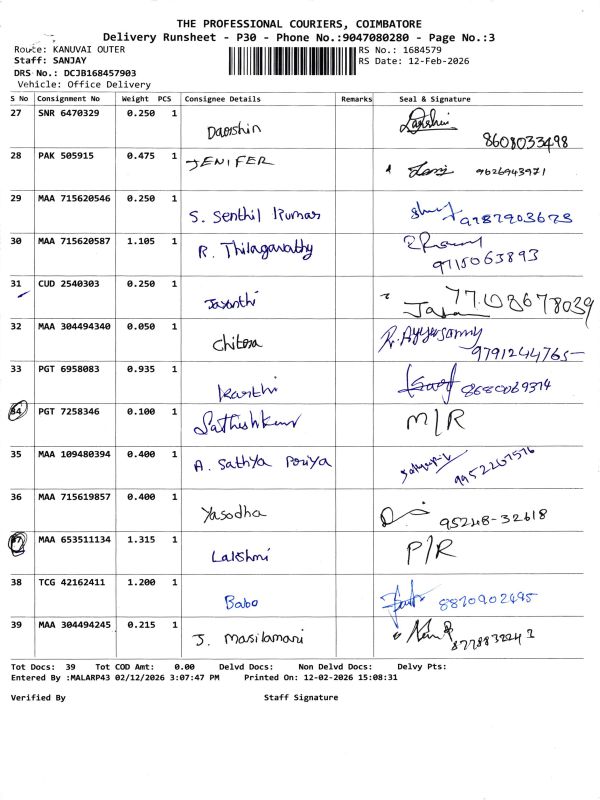 THE PROFESSIONAL COURIERS, COIMBATORE
Delivery Runsheet - P30 - Phone No.:9047080280 - Page No.:3
Route: KANUVAI OUTER
RS No.: 1684579
Staff: SANJAY
RS Date: 12-Feb-2026
DRS No.: DCJB168457903
Vehicle: Office Delivery
S No Consignment No Weight PCS Consignee Details Remarks Seal & Signature
27 SNR 6470329 0.250 1
8608033498
28 PAK 505915 0.475 1 JENIFER
9626943971
29 MAA 715620546 0.250 1
S. Senthil Kumar
30 MAA 715620587 1.105 1 R. Thilagavathy
9715063893
31 CUD 2540303 0.250 1
Jayanthi
32 MAA 304494340 0.050 1 Chitora
R. Ayyasamy
9791244765
33 PGT 6958083 0.935 1
Karthi
34 PGT 7258346 0.100 1 Sathishkumar M/R
35 MAA 109480394 0.400 1 A. Sathiya Poriya
9952267576
36 MAA 715619857 0.400 1
Yasodha 95248-32618
37 MAA 653511134 1.315 1 P/R
Lakshmi
38 TCG 42162411 1.200 1
Babo 8820902495
39 MAA 304494245 0.215 1
J. Masilamani
Tot Docs: 39 Tot COD Amt: 0.00 Delvd Docs: Non Delvd Docs: Delvy Pts:
Entered By :MALARP43 02/12/2026 3:07:47 PM Printed On: 12-02-2026 15:08:31
Verified By Staff Signature